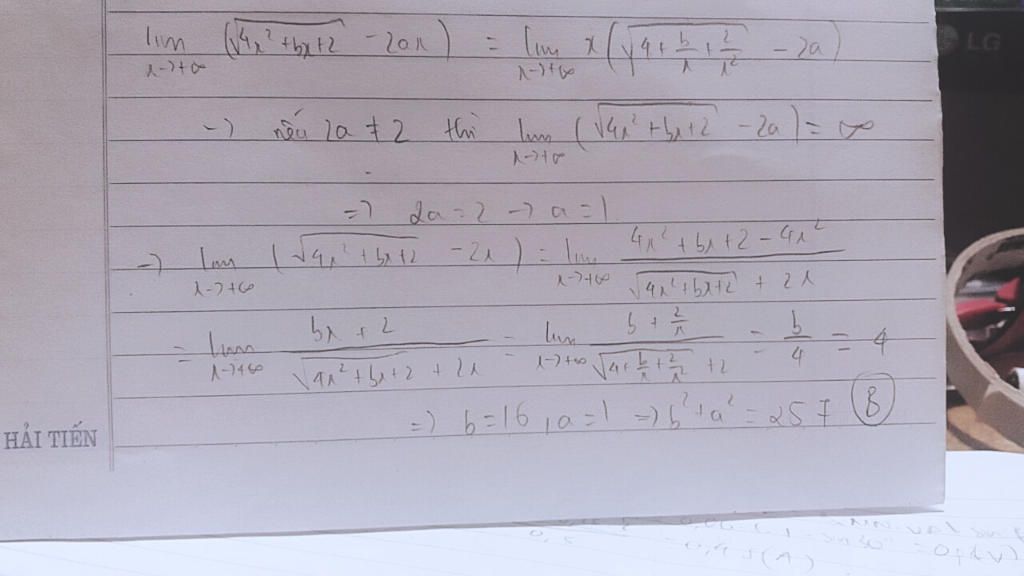 lim x→+∞ (√(4x²+bx+2) - 2ax) = lim x→+∞ x(√(4+b/x+2/x²) - 2a)
→ nếu 2a ≠ 2 thì lim x→+∞ (√(4x²+bx+2) - 2a) = ∞
⇒ 2a = 2 → a = 1
→ lim x→+∞ (√(4x²+bx+2) - 2x) = lim x→+∞ (4x²+bx+2-4x²)/(√(4x²+bx+2) + 2x)
= lim x→+∞ (bx+2)/(√(4x²+bx+2) + 2x) = lim x→+∞ (b+2/x)/(√(4+b/x+2/x²) + 2) = b/4 = 4
⇒ b=16, a=1 ⇒ b²+a² = 257 B
HẢI TIẾN
LG